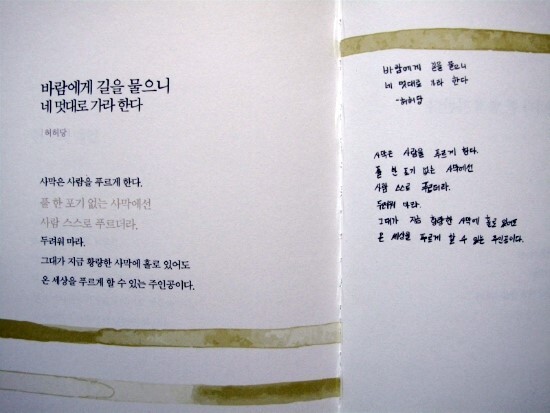 바람에게 길을 물으니
네 멋대로 가라 한다
허허당
사막은 사람을 푸르게 한다.
풀 한 포기 없는 사막에선
사람 스스로 푸르더라.
두려워 마라.
그대가 지금 황량한 사막에 홀로 있어도
온 세상을 푸르게 할 수 있는 주인공이다.
바람에게 길을 물으니
네 멋대로 가라 한다
-허허당
사막은 사람을 푸르게 한다.
풀 한 포기 없는 사막에선
사람 스스로 푸르더라.
두려워 마라.
그대가 지금 황량한 사막에 홀로 있어도
온 세상을 푸르게 할 수 있는 주인공이다.